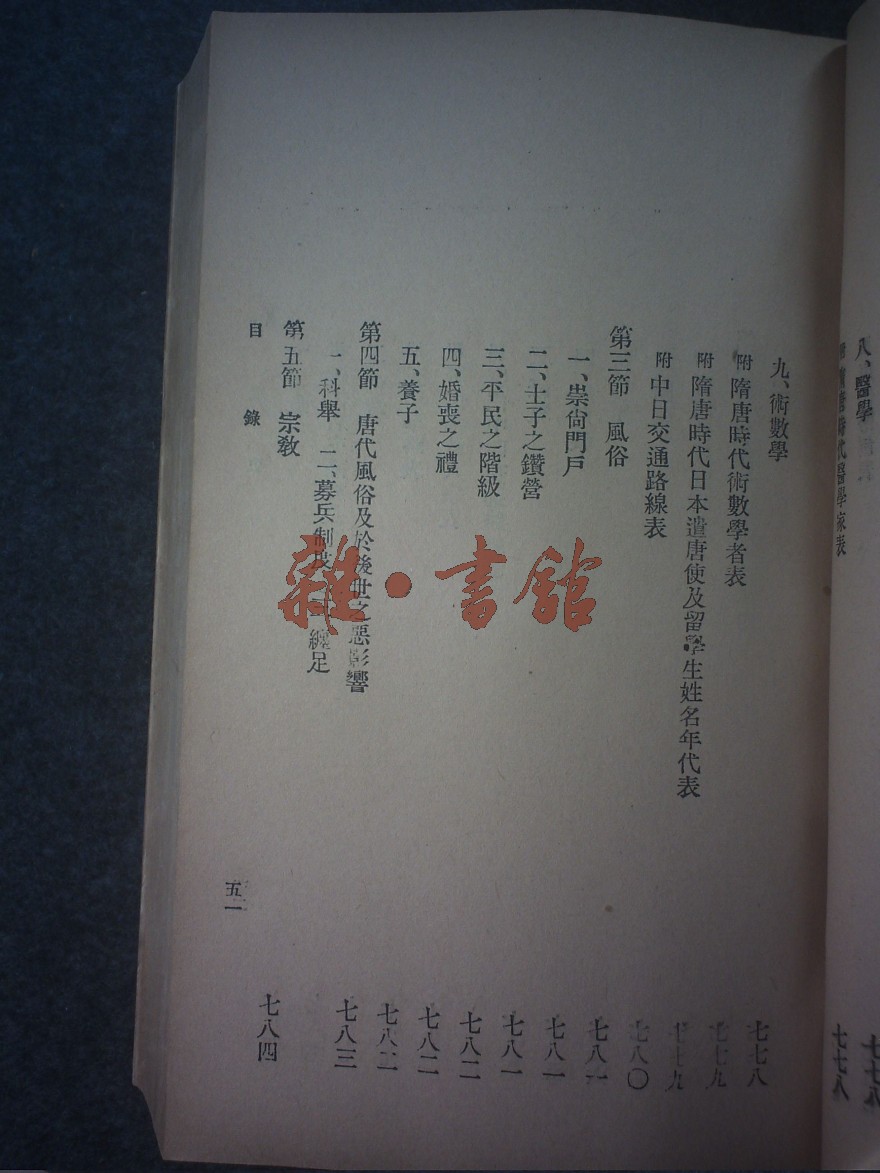 八、醫學 七七八
附 隋唐時代醫學家表 七七八
九、術數學 七七八
附 隋唐時代術數學者表 七七九
附 隋唐時代日本遣唐使及留學生姓名年代表 七七九
附 中日交通路線表 七八〇
第三節 風俗 七八一
一、崇尙門戶 七八一
二、士子之鑽營 七八一
三、平民之階級 七八二
四、婚喪之禮 七八二
五、養子 七八二
第四節 唐代風俗及於後世之惡影響 七八三
一、科舉 二、募兵制度 三、纏足
第五節 宗敎 七八四
目錄 五一
雜·書館